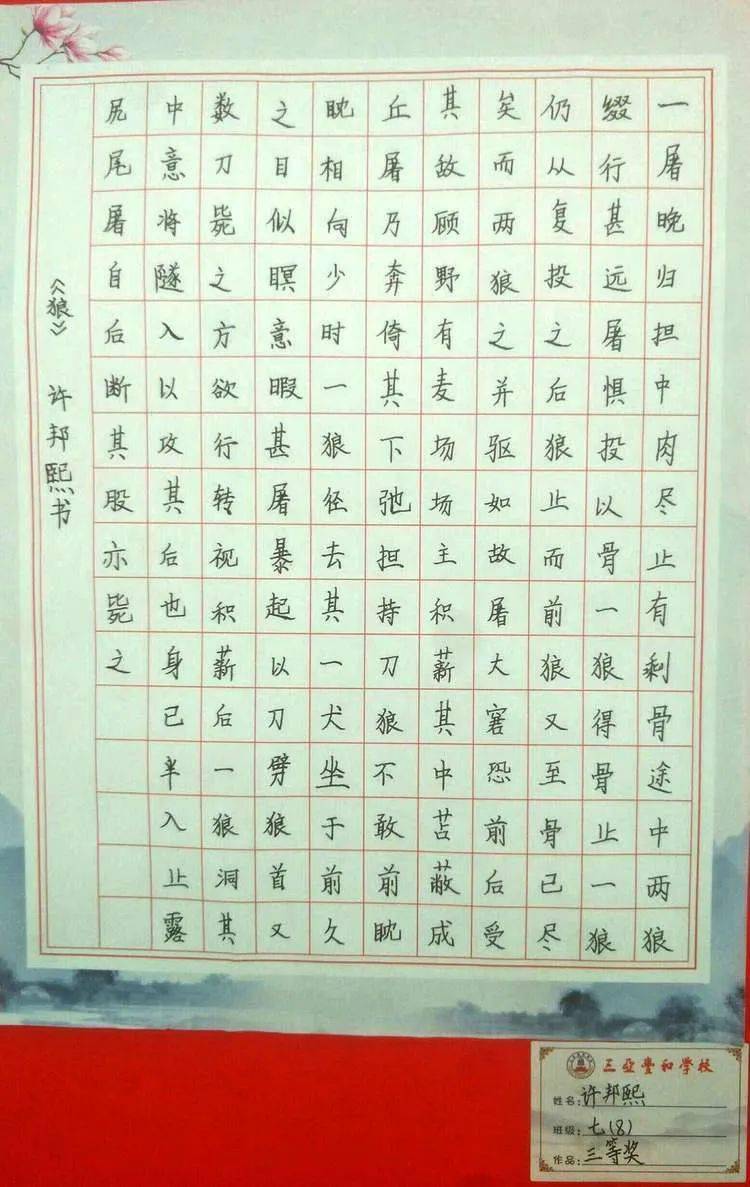 一屠晚归担中肉尽止有剩骨途中两狼
缀行甚远屠惧投以骨一狼得骨止一狼
仍从复投之后狼止而前狼又至骨已尽
矣而两狼之并驱如故屠大窘恐前后受
其敌顾野有麦场场主积薪其中苫蔽成
丘屠乃奔倚其下弛担持刀狼不敢前眈
眈相向少时一狼径去其一犬坐于前久
之目似瞑意暇甚屠暴起以刀劈狼首又
数刀毙之方欲行转视积薪后一狼洞其
中意将隧入以攻其后也身已半入止露
尻尾屠自后断其股亦毙之
《狼》 许邦熙书
三亚丰和学校
姓名:许邦熙
班级:七(8)
作品:三等奖